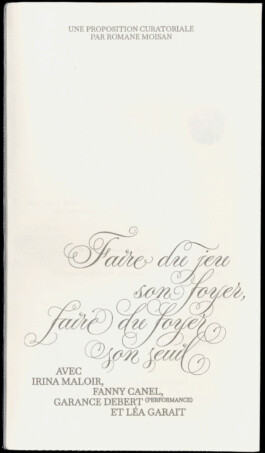 UNE PROPOSITION CURATORIALE
PAR ROMANE MOISAN
Faire du jeu
son foyer,
faire du foyer
son seuil
AVEC
IRINA MALOIR,
FANNY CANEL,
GARANCE DEBERT (PERFORMANCE)
ET LÉA GARAIT